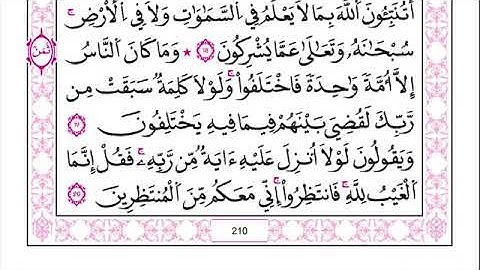 أَتُنَبِّـُٔونَ ٱللَّهَ بِمَا لَا يَعْلَمُ فِي ٱلسَّمَٰوَٰتِ وَلَا فِي ٱلْأَرْضِ ۚ
سُبْحَٰنَهُۥ وَتَعَٰلَىٰ عَمَّا يُشْرِكُونَ ۝ ★ وَمَا كَانَ ٱلنَّاسُ
ثمن
إِلَّآ أُمَّةً وَٰحِدَةً فَٱخْتَلَفُوا۟ ۚ وَلَوْلَا كَلِمَةٌ سَبَقَتْ مِن
رَّبِّكَ لَقُضِيَ بَيْنَهُمْ فِيمَا فِيهِ يَخْتَلِفُونَ
وَيَقُولُونَ لَوْلَآ أُنزِلَ عَلَيْهِ ءَايَةٌ مِّن رَّبِّهِۦ ۖ فَقُلْ إِنَّمَا
ٱلْغَيْبُ لِلَّهِ ۖ فَٱنتَظِرُوٓا۟ إِنِّي مَعَكُم مِّنَ ٱلْمُنتَظِرِينَ
210